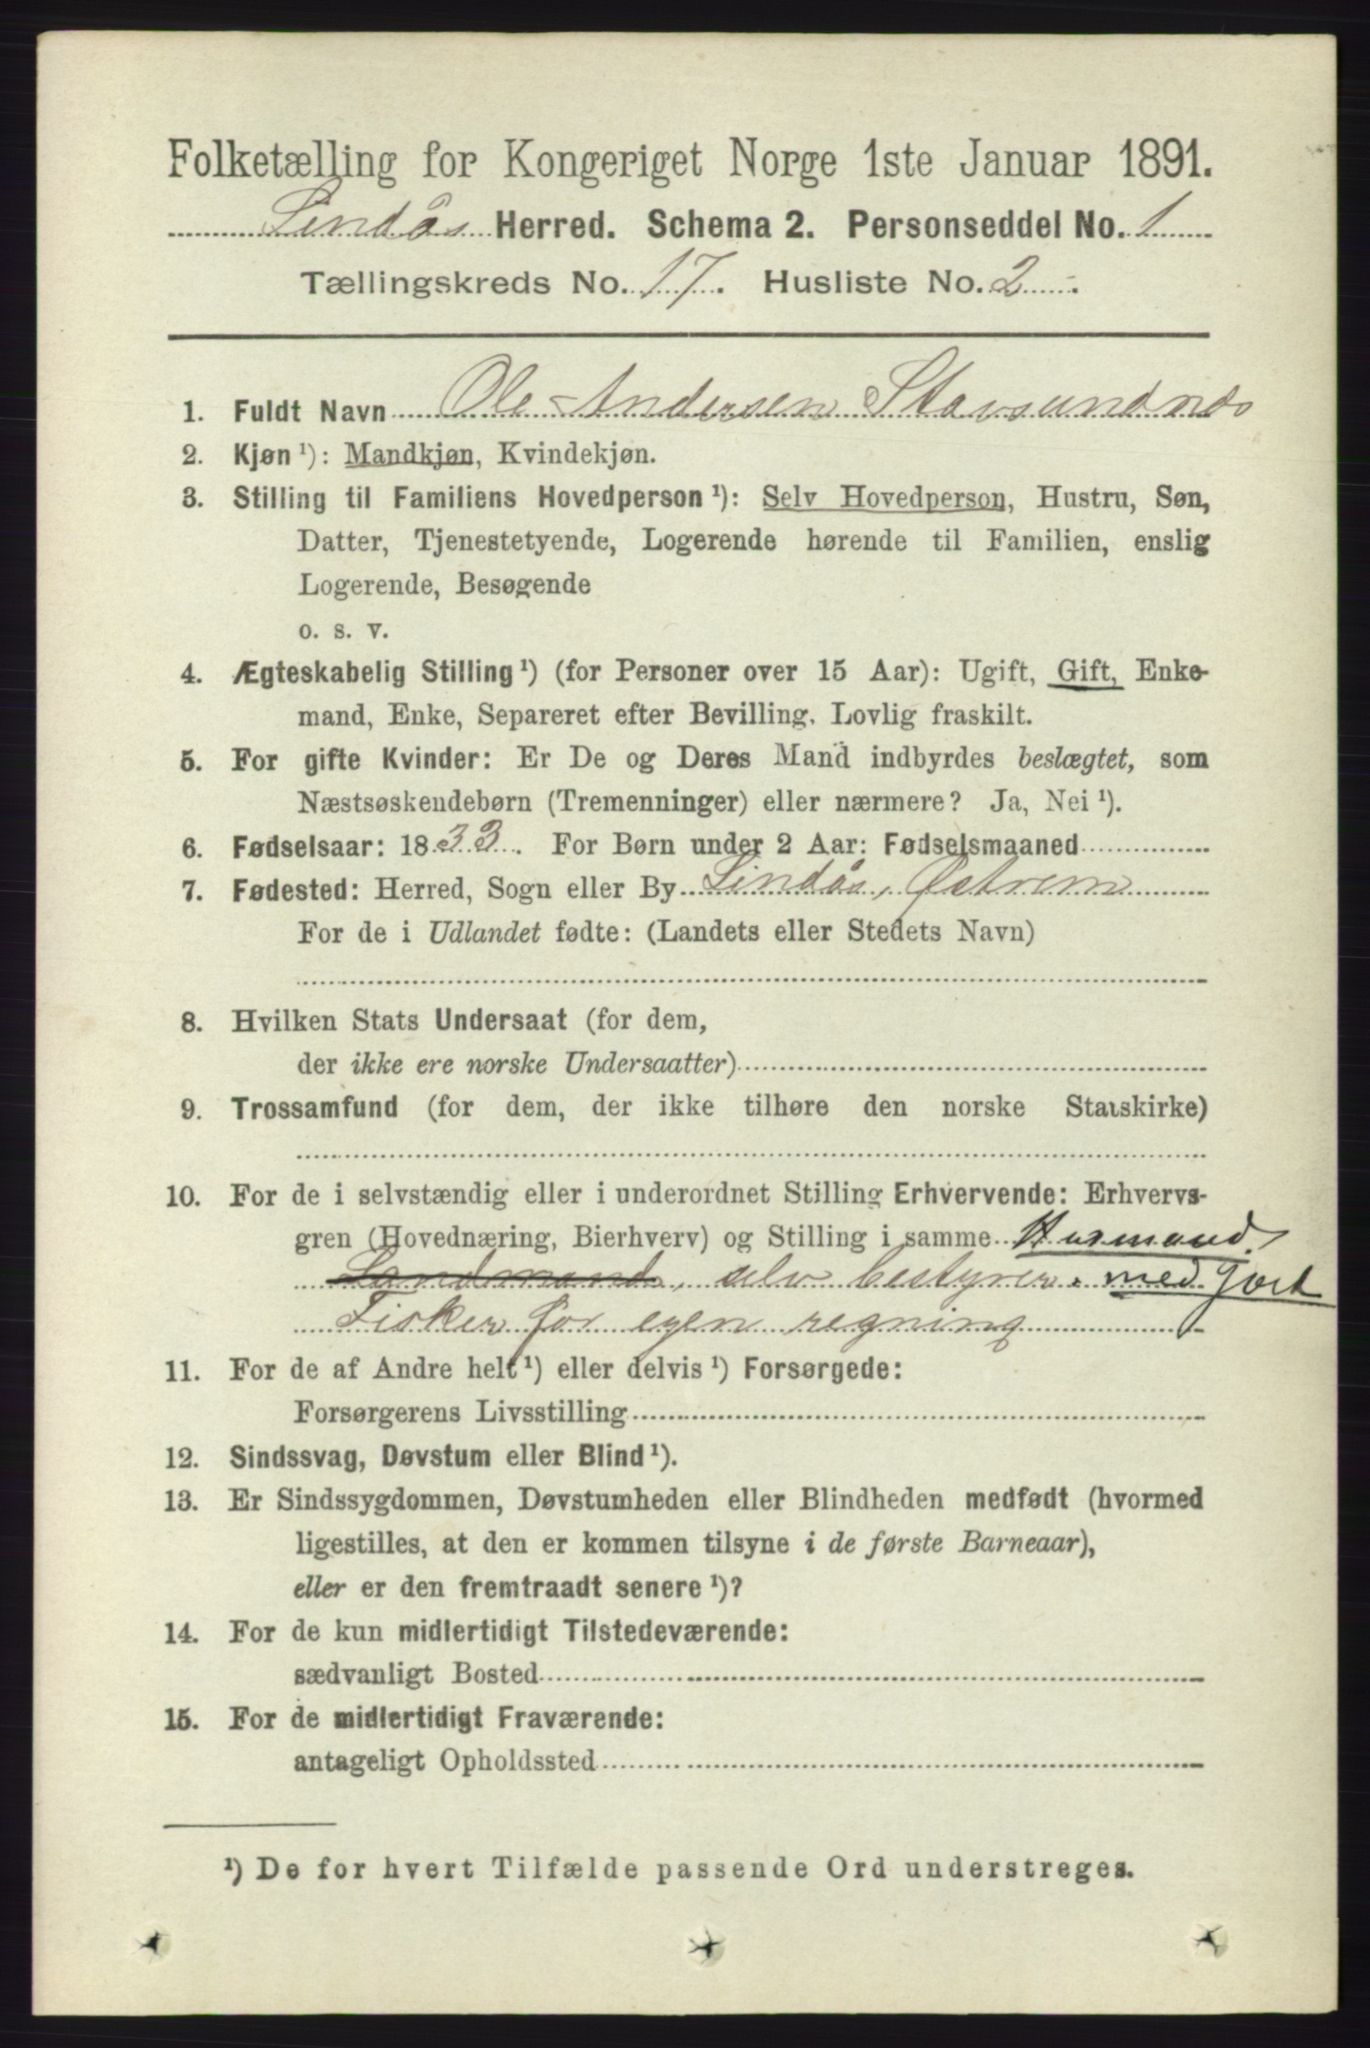 Folketælling for Kongeriget Norge 1ste Januar 1891.
Lindås Herred. Schema 2. Personseddel No. 1
Tællingskreds No. 17. Husliste No. 2
1. Fuldt Navn Ole Andersen Stavsundnes
2. Kjøn ¹): Mandkjøn, Kvindekjøn.
3. Stilling til Familiens Hovedperson ¹): Selv Hovedperson, Hustru, Søn,
Datter, Tjenestetyende, Logerende hørende til Familien, enslig
Logerende, Besøgende
o. s. v.
4. Ægteskabelig Stilling ¹) (for Personer over 15 Aar): Ugift, Gift, Enke-
mand, Enke, Separeret efter Bevilling. Lovlig fraskilt.
5. For gifte Kvinder: Er De og Deres Mand indbyrdes beslægtet, som
Næstsøskendebørn (Tremenninger) eller nærmere? Ja, Nei ¹).
6. Fødselsaar: 1833. For Børn under 2 Aar: Fødselsmaaned
7. Fødested: Herred, Sogn eller By Lindås, Østrem
For de i Udlandet fødte: (Landets eller Stedets Navn)
8. Hvilken Stats Undersaat (for dem,
der ikke ere norske Undersaatter)
9. Trossamfund (for dem, der ikke tilhøre den norske Statskirke)
10. For de i selvstændig eller i underordnet Stilling Erhvervende: Erhvervs-
gren (Hovednæring, Bierhverv) og Stilling i samme Husmand
Landmand, selv bestyrer. med Jord
Fisker for egen regning
11. For de af Andre helt ¹) eller delvis ¹) Forsørgede:
Forsørgerens Livsstilling
12. Sindssvag, Døvstum eller Blind ¹).
13. Er Sindssygdommen, Døvstumheden eller Blindheden medfødt (hvormed
ligestilles, at den er kommen tilsyne i de første Barneaar),
eller er den fremtraadt senere ¹)?
14. For de kun midlertidigt Tilstedeværende:
sædvanligt Bosted
15. For de midlertidigt Fraværende:
antageligt Opholdssted
¹) De for hvert Tilfælde passende Ord understreges.